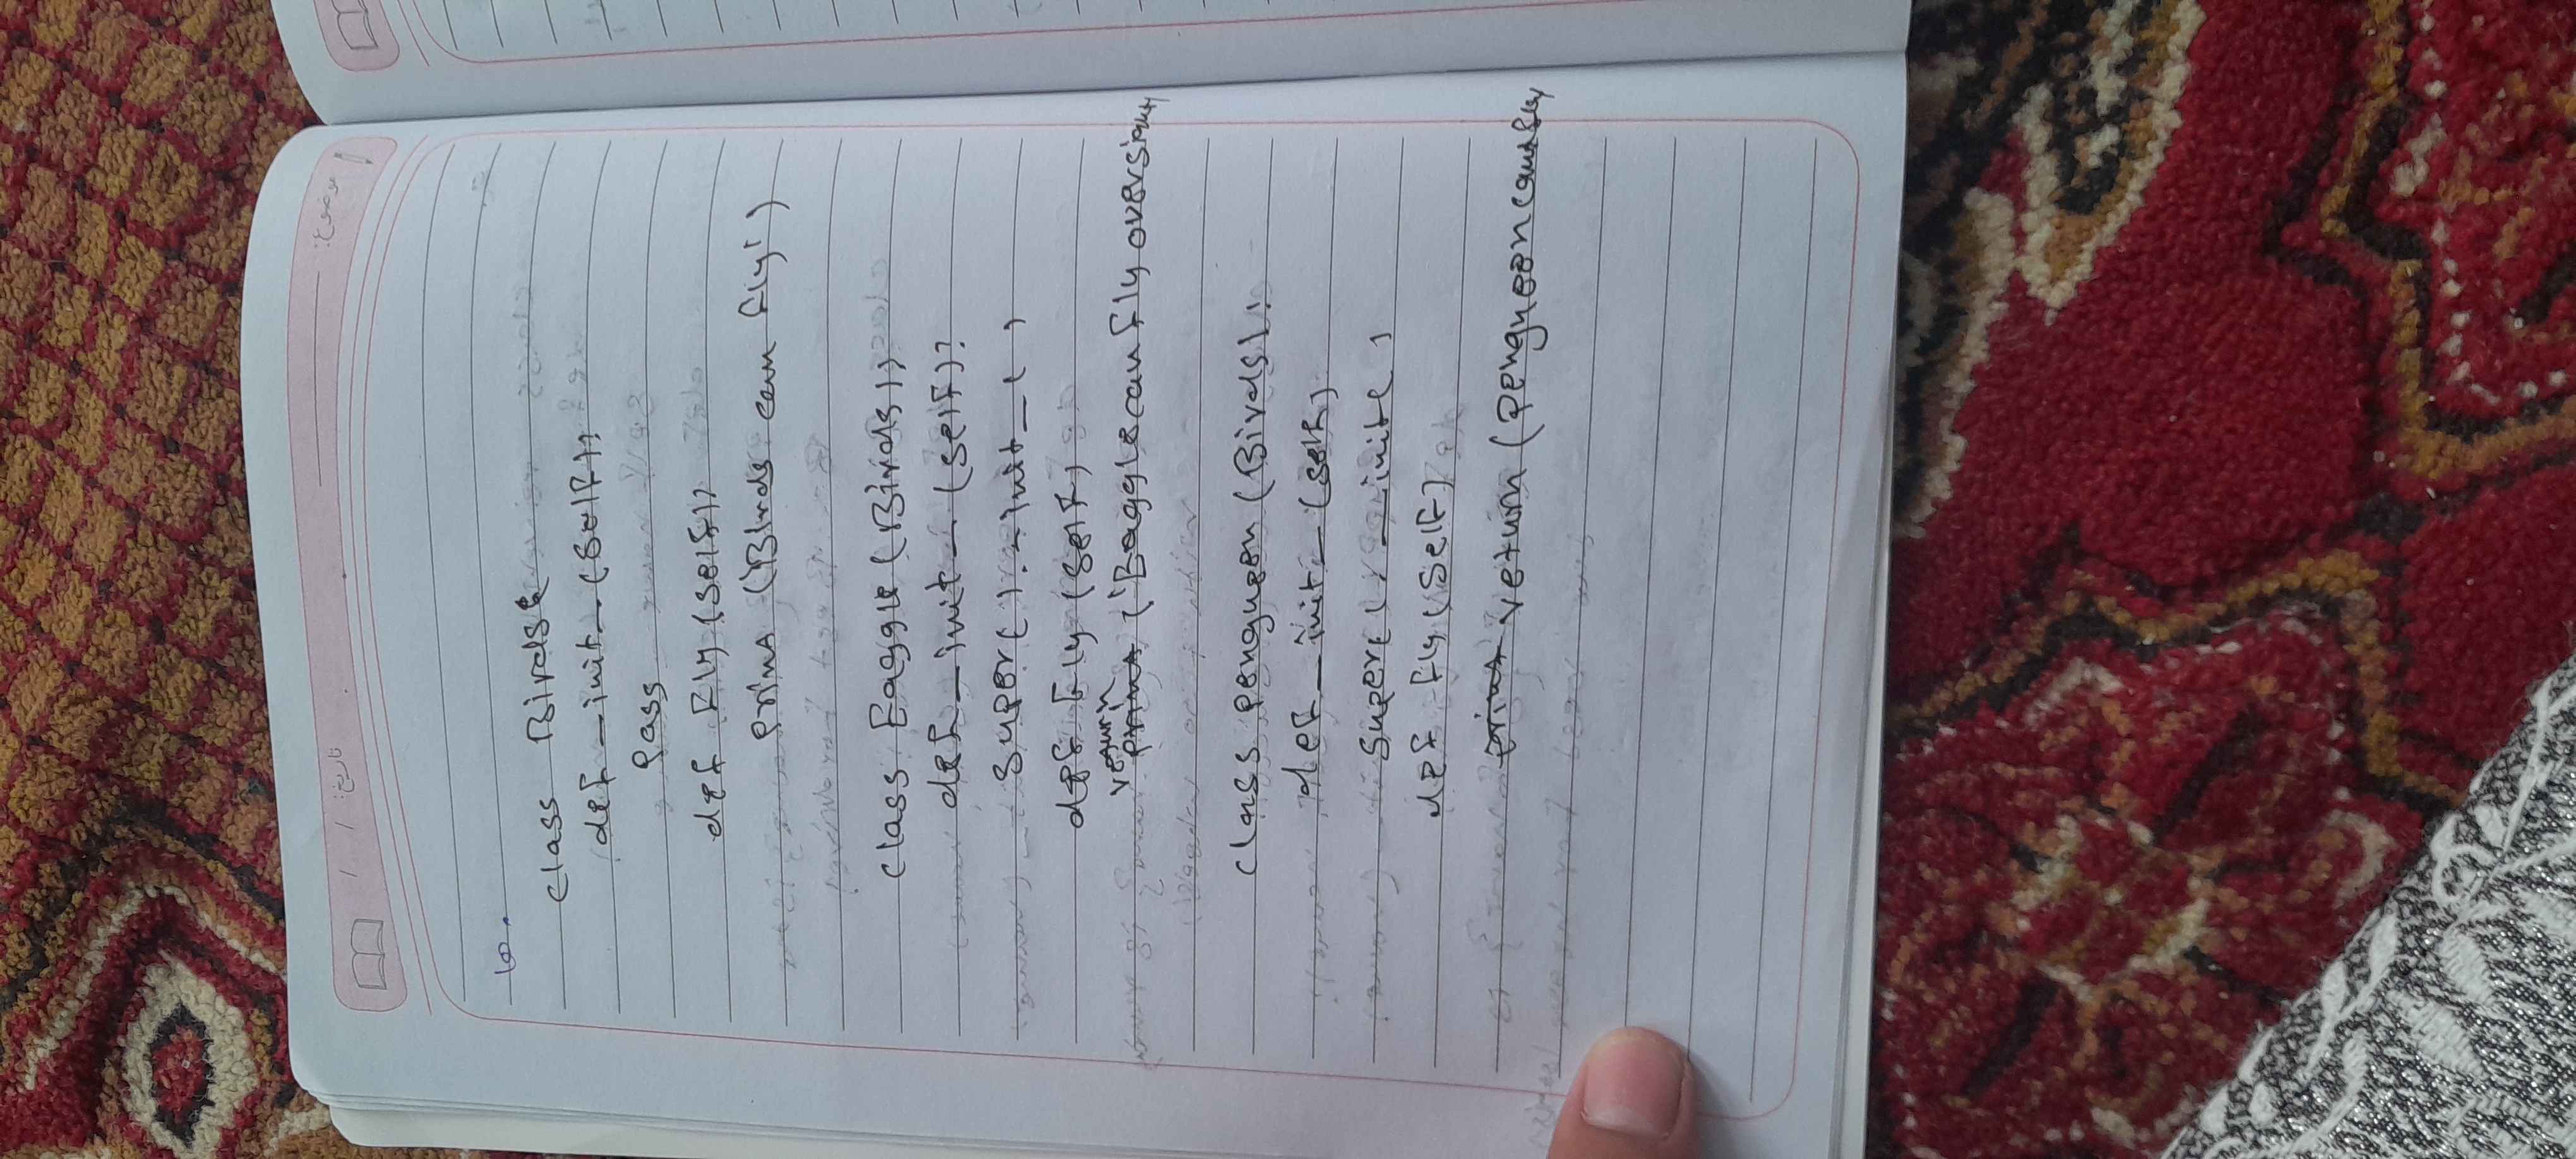 موضوع:
تاریخ: / /
10.
class Birds:
def _init_(self):
Pass
def Fly (self):
print ('Birds can fly')
class Eaggle (Birds):
def _init_ (self):
super( ). _init_( )
def Fly (self)
return
print ('Eaggle can fly over
class pengueen (Birds):
def _init_ (self)
super( ). _init( )
def fly (self)
print return (pengueen cant fly